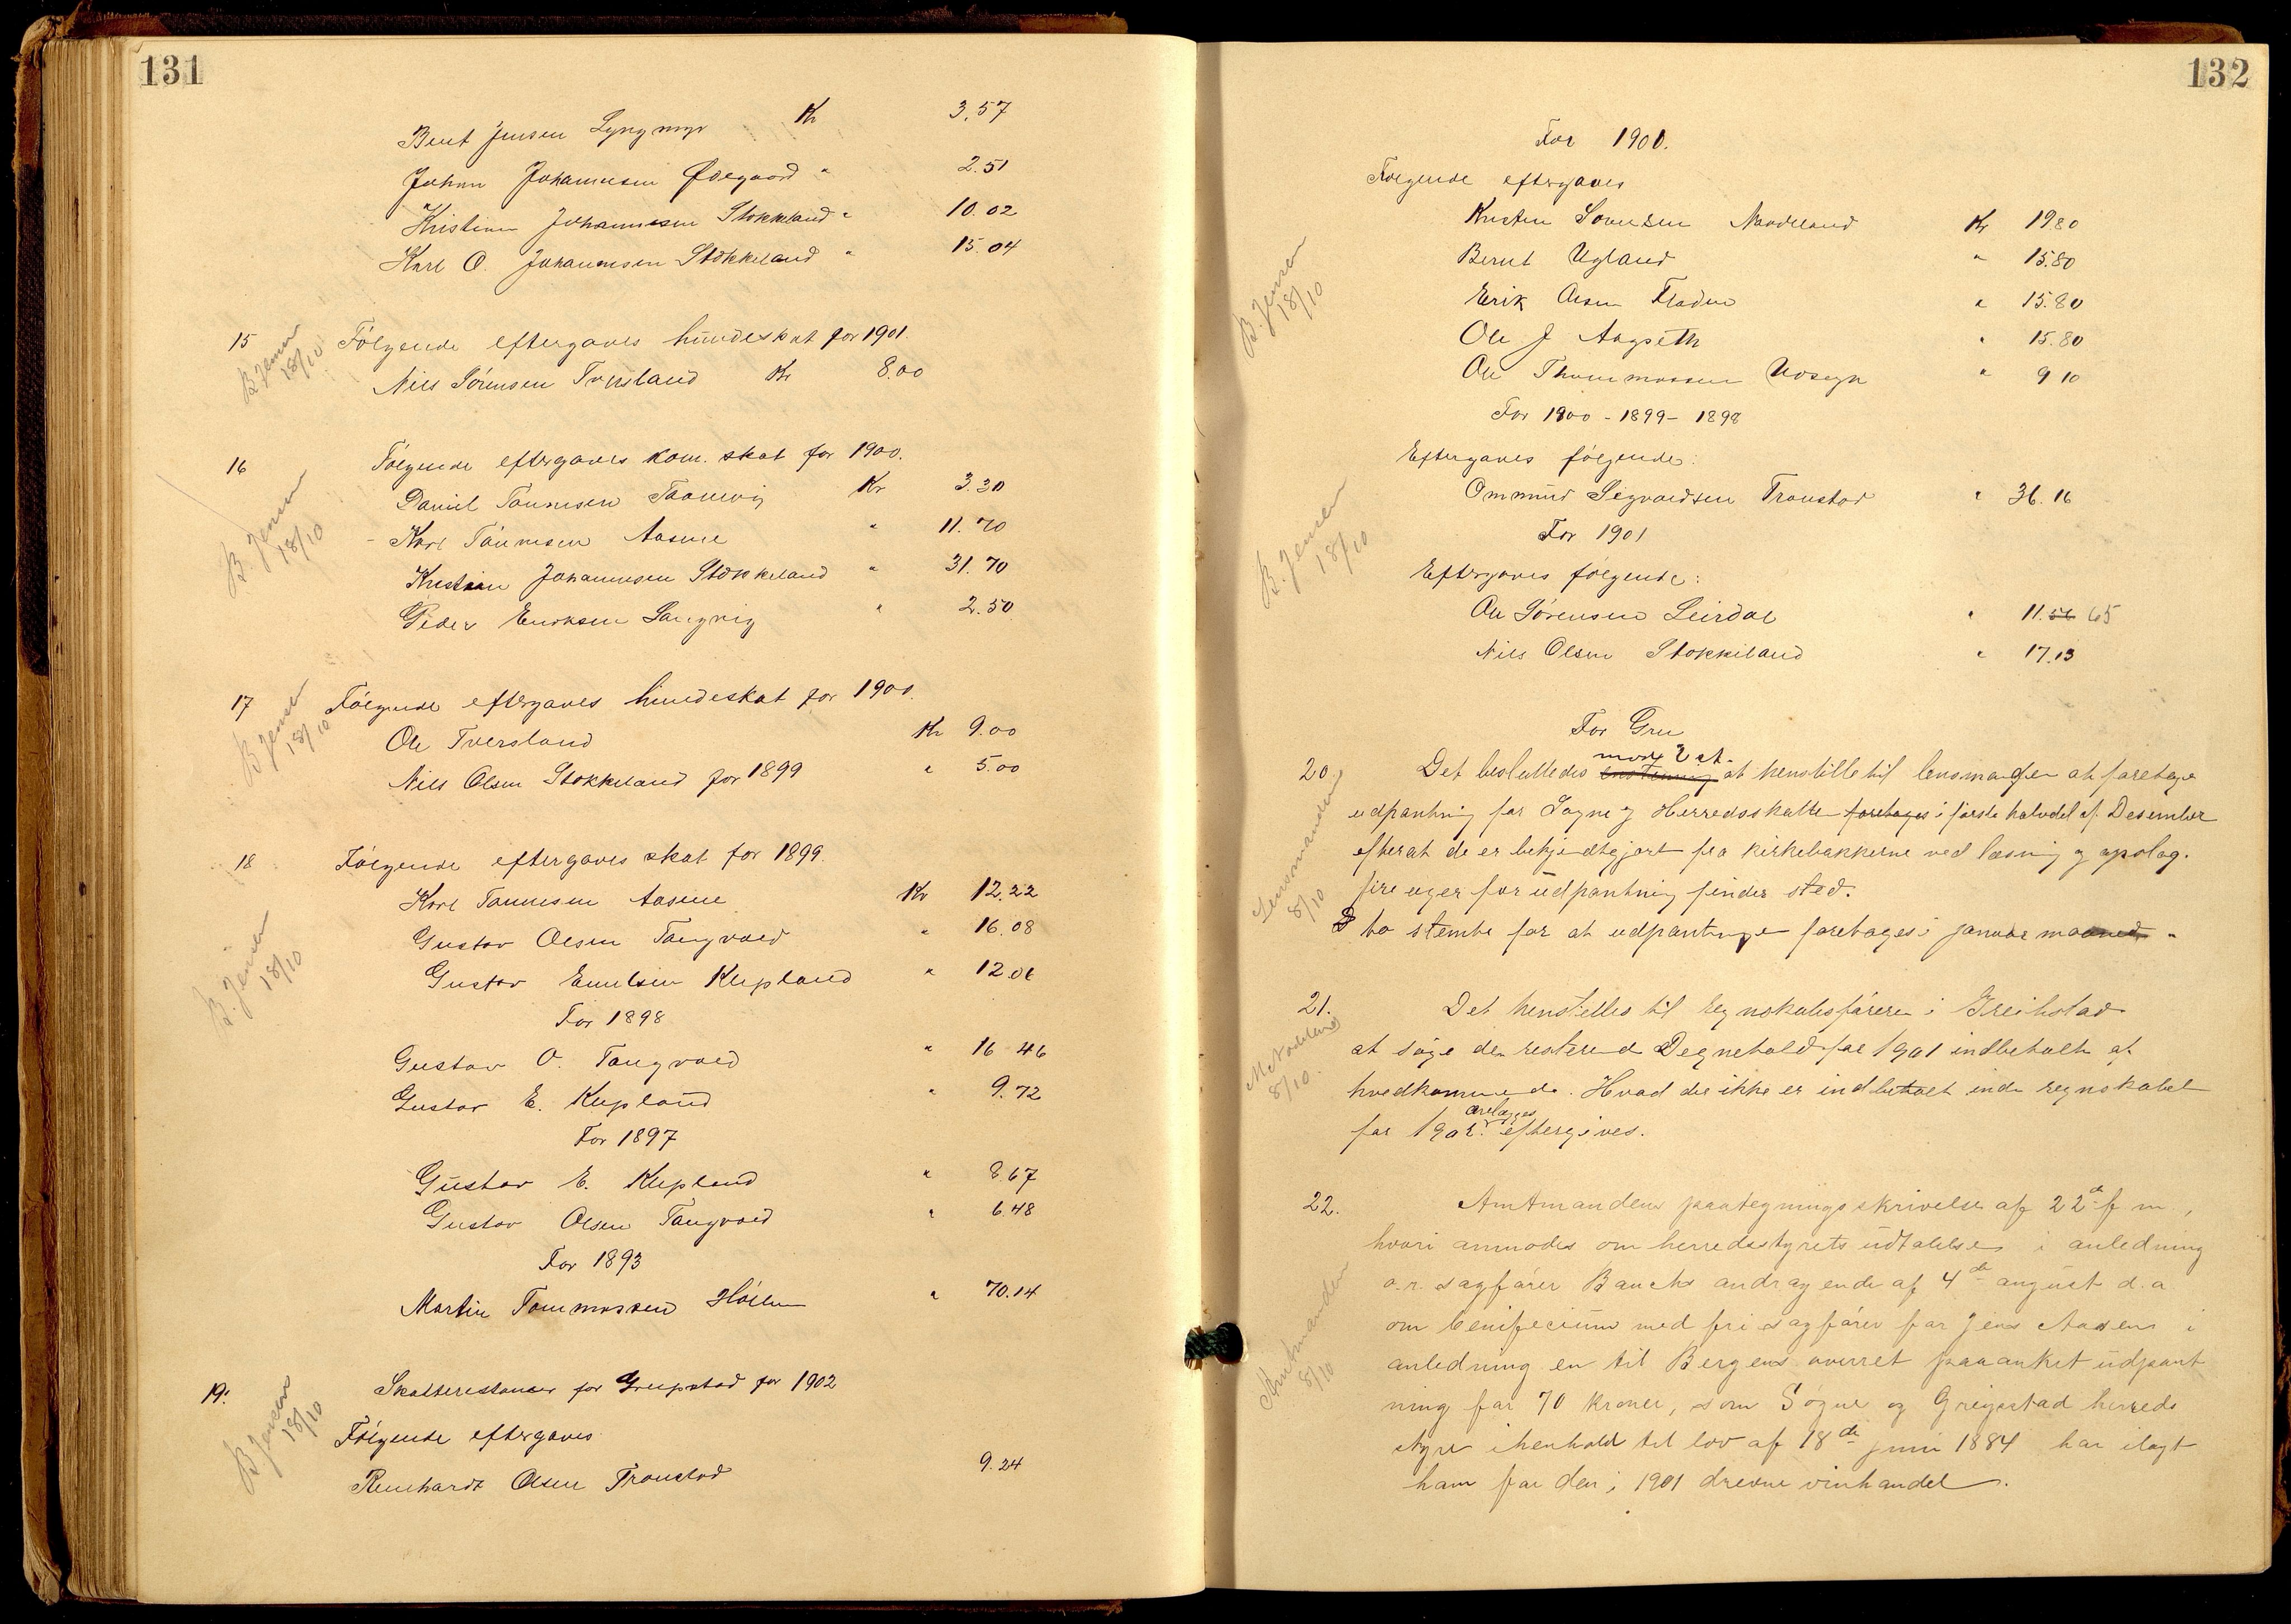 131
Bent Jensen Lyngmyr Kr 3.57
Johan Johannesen Ødegaard " 2.51
Kristian Johannesen Stokkeland " 10.02
Karl O. Johannesen Stokkeland " 15.04
B. Jensen 18/10
15 Følgende eftergaves hundeskat for 1901.
Nils Sørensen Tversland Kr 8.00
B. Jensen 18/10
16 Følgende eftergaves kom. skat for 1900.
Daniel Tønnesen Kr 3.30
Karl Tønnesen Aasene " 11.70
Kristian Johannesen Stokkeland " 31.70
Peder Eriksen Langvig " 2.50
B Jensen 18/10
17 Følgende eftergaves hundeskat for 1900.
Ole Tversland Kr 9.00
Nils Olsen Stokkeland for 1899 " 5.00
B. Jensen 18/10
18 Følgende eftergaves skat for 1899.
Karl Tønnesen Aasene Kr 12.22
Gustav Olsen Tangvald " 16.08
Gustav Emilsen Klepland " 12.06
For 1898
Gustav O. Tangvald " 16 46
Gustav E. Klepland " 9.72
For 1897
Gustav E. Klepland " 8.67
Gustav Olsen Tangvald " 6.48
For 1893
Martin Tommassen Høllen " 70.14
B Jensen 18/10
19. Skatterestancer for Greipstad for 1902
Følgende eftergaves
Reinhardt Olsen Tronstad 9.24
132
For 1900.
Følgende eftergaves
B. Jensen 18/10
Kristen Sørensen Nodeland Kr 19 80
Bernt Ugland " 15.80
Erik Olsen " 15.80
Ole J " 15.80
Ole Thommassen " 9 10
For 1900 - 1899 - 1898
Eftergaves følgende:
Ommund Segvaldsen Tronstad " 36.16
B. Jensen 18/10
For 1901
Eftergaves følgende:
Ole Sørensen Leirdal " 11.56 65
Nils Olsen Stokkeland " 17.13
For Grei
mod 2 st.
20 Det besluttedes enstemmig at henstille til lensmanden at foretage
udpantning for Søgne og Herredsskatte foretages i første halvdel af Desember
efterat de er bekjendtgjort fra kirkebakkerne ved læsning og opslag.
fire uger før udpantning finder sted.
to stemte for at udpantninge foretages i januar maaned.
Lensmanden 8/10
21. Det henstilles til regnskabsføreren i Greibstad
at søge de resterend Degnetold for 1901 indbetalt af
vedkommende. Hvad der ikke er indbetalt inde regnskabet
aflægges
for 1902. eftergives.
M Nodeland 8/10.
22. Amtmandens paategningsskrivelse af 22de f m,
hvori anmodes om herredsstyrets udtalelse i anledning
o.r. sagfører Bauchs andragende af 4de august d.a
om benificium med fri sagfører for Jens Aasen i
anledning en til Bergens overret paaanket udpant
ning for 70 kroner, som Søgne og Greipstad herreds
styre ihenhold til lov af 18de juni 1884 har ilagt
ham for den i 1901 drevne vinhandel.
Amtmanden 8/10